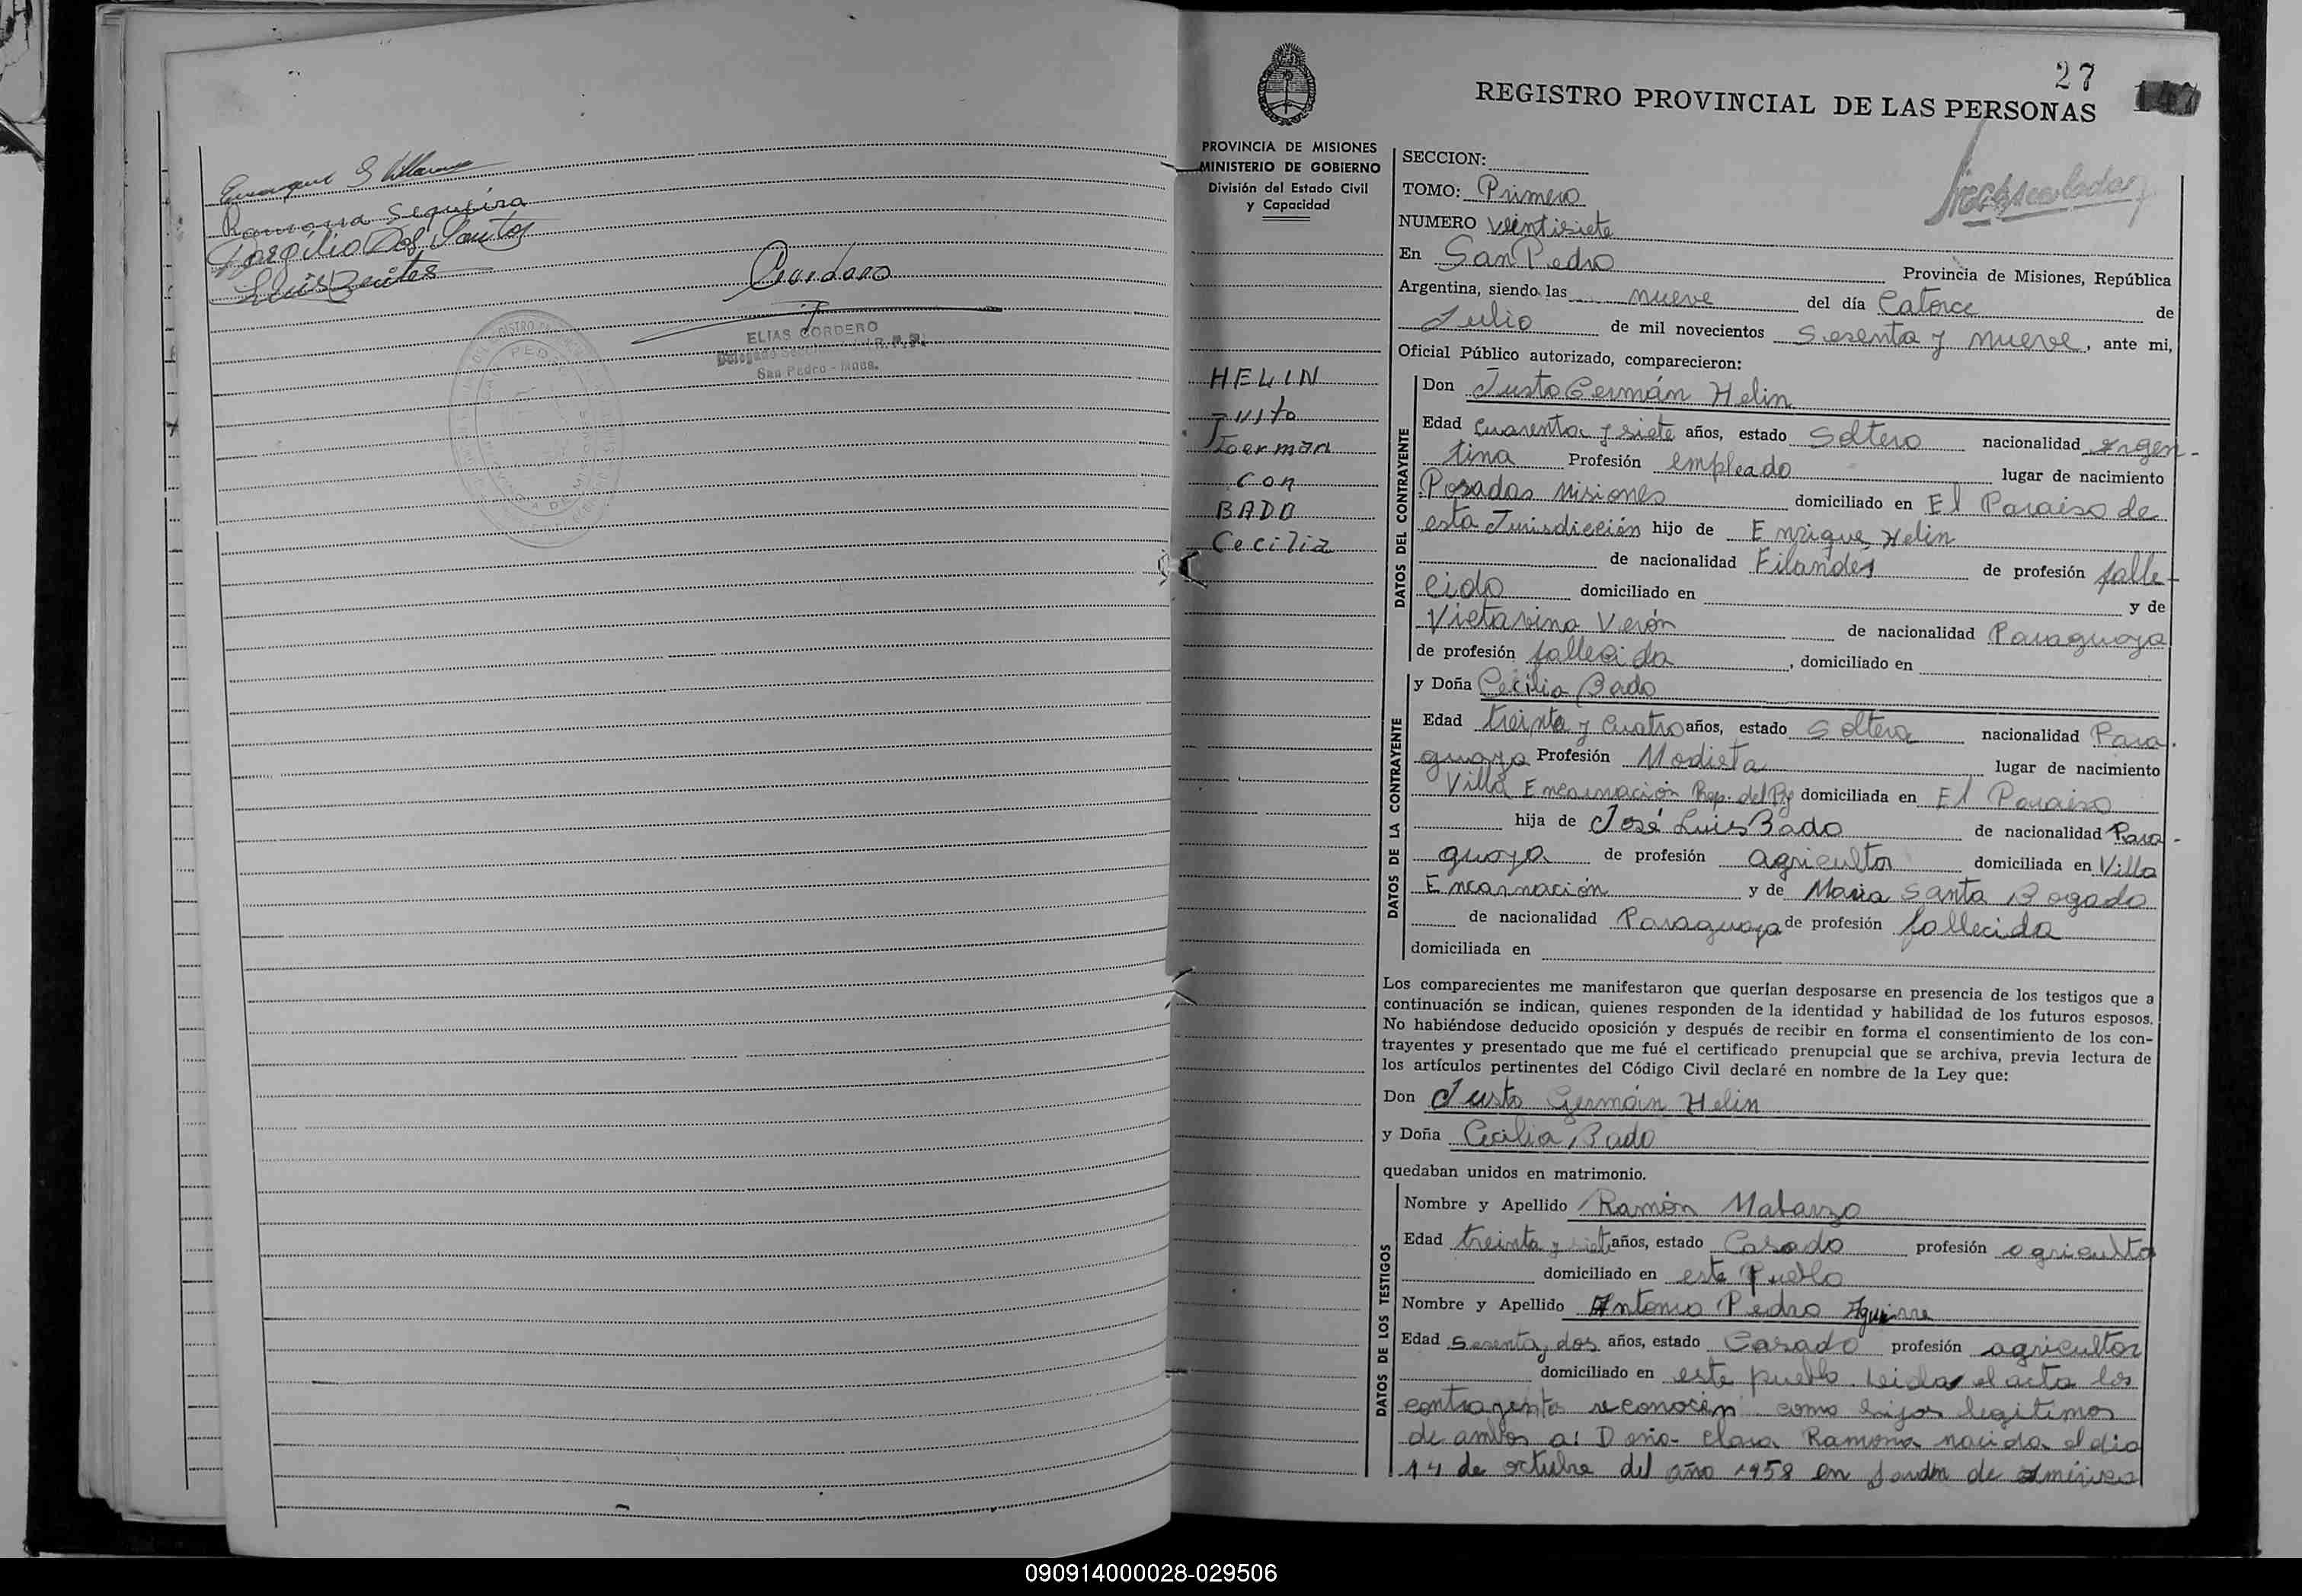 Ramona Sequeira
Dos Santos
Luis Benites
Cordero
ELIAS CORDERO
San Pedro - Mnes.
27
REGISTRO PROVINCIAL DE LAS PERSONAS
PROVINCIA DE MISIONES
MINISTERIO DE GOBIERNO
División del Estado Civil
y Capacidad
HELIN
Justo
German
Con
BADO
Cecilia
SECCION:
TOMO: Primero
NUMERO veintisiete
En San Pedro Provincia de Misiones, República
Argentina, siendo las nueve del día Catorce de
Julio de mil novecientos Sesenta y nueve, ante mi,
Oficial Público autorizado, comparecieron:
DATOS DEL CONTRAYENTE
Don Justo Germán Helin
Edad Cuarenta y siete años, estado Soltero nacionalidad Argen-
tina Profesión empleado lugar de nacimiento
Posadas Misiones domiciliado en El Paraiso de
esta Jurisdicción hijo de Enrique Helin
de nacionalidad Filandés de profesión falle-
cido domiciliado en y de
Victorina Verón de nacionalidad Paraguaya
de profesión fallecida, domiciliado en
DATOS DE LA CONTRAYENTE
y Doña Cecilia Bado
Edad treinta y cuatro años, estado Soltera nacionalidad Para-
guaya Profesión Modista lugar de nacimiento
Villa Encarnación Rep. del Py domiciliada en El Paraiso
hija de José Luis Bado de nacionalidad Para-
guaya de profesión agricultor domiciliada en Villa
Encarnación y de Maria Santa Bogado
de nacionalidad Paraguaya de profesión fallecida
domiciliada en
Los comparecientes me manifestaron que querían desposarse en presencia de los testigos que a
continuación se indican, quienes responden de la identidad y habilidad de los futuros esposos.
No habiéndose deducido oposición y después de recibir en forma el consentimiento de los con-
trayentes y presentado que me fué el certificado prenupcial que se archiva, previa lectura de
los artículos pertinentes del Código Civil declaré en nombre de la Ley que:
Don Justo Germán Helin
y Doña Cecilia Bado
quedaban unidos en matrimonio.
DATOS DE LOS TESTIGOS
Nombre y Apellido Ramón
Edad treinta y siete años, estado Casado profesión agricultor
domiciliado en este Pueblo
Nombre y Apellido Antonio Pedro Aguirre
Edad Sesenta y dos años, estado Casado profesión agricultor
domiciliado en este pueblo. Leida el acta los
contrayentes reconocen como hijos legitimos
de ambos a: Doña- Clara Ramona nacida el dia
14 de octubre del año 1958 en Jardin de América
090914000028-029506